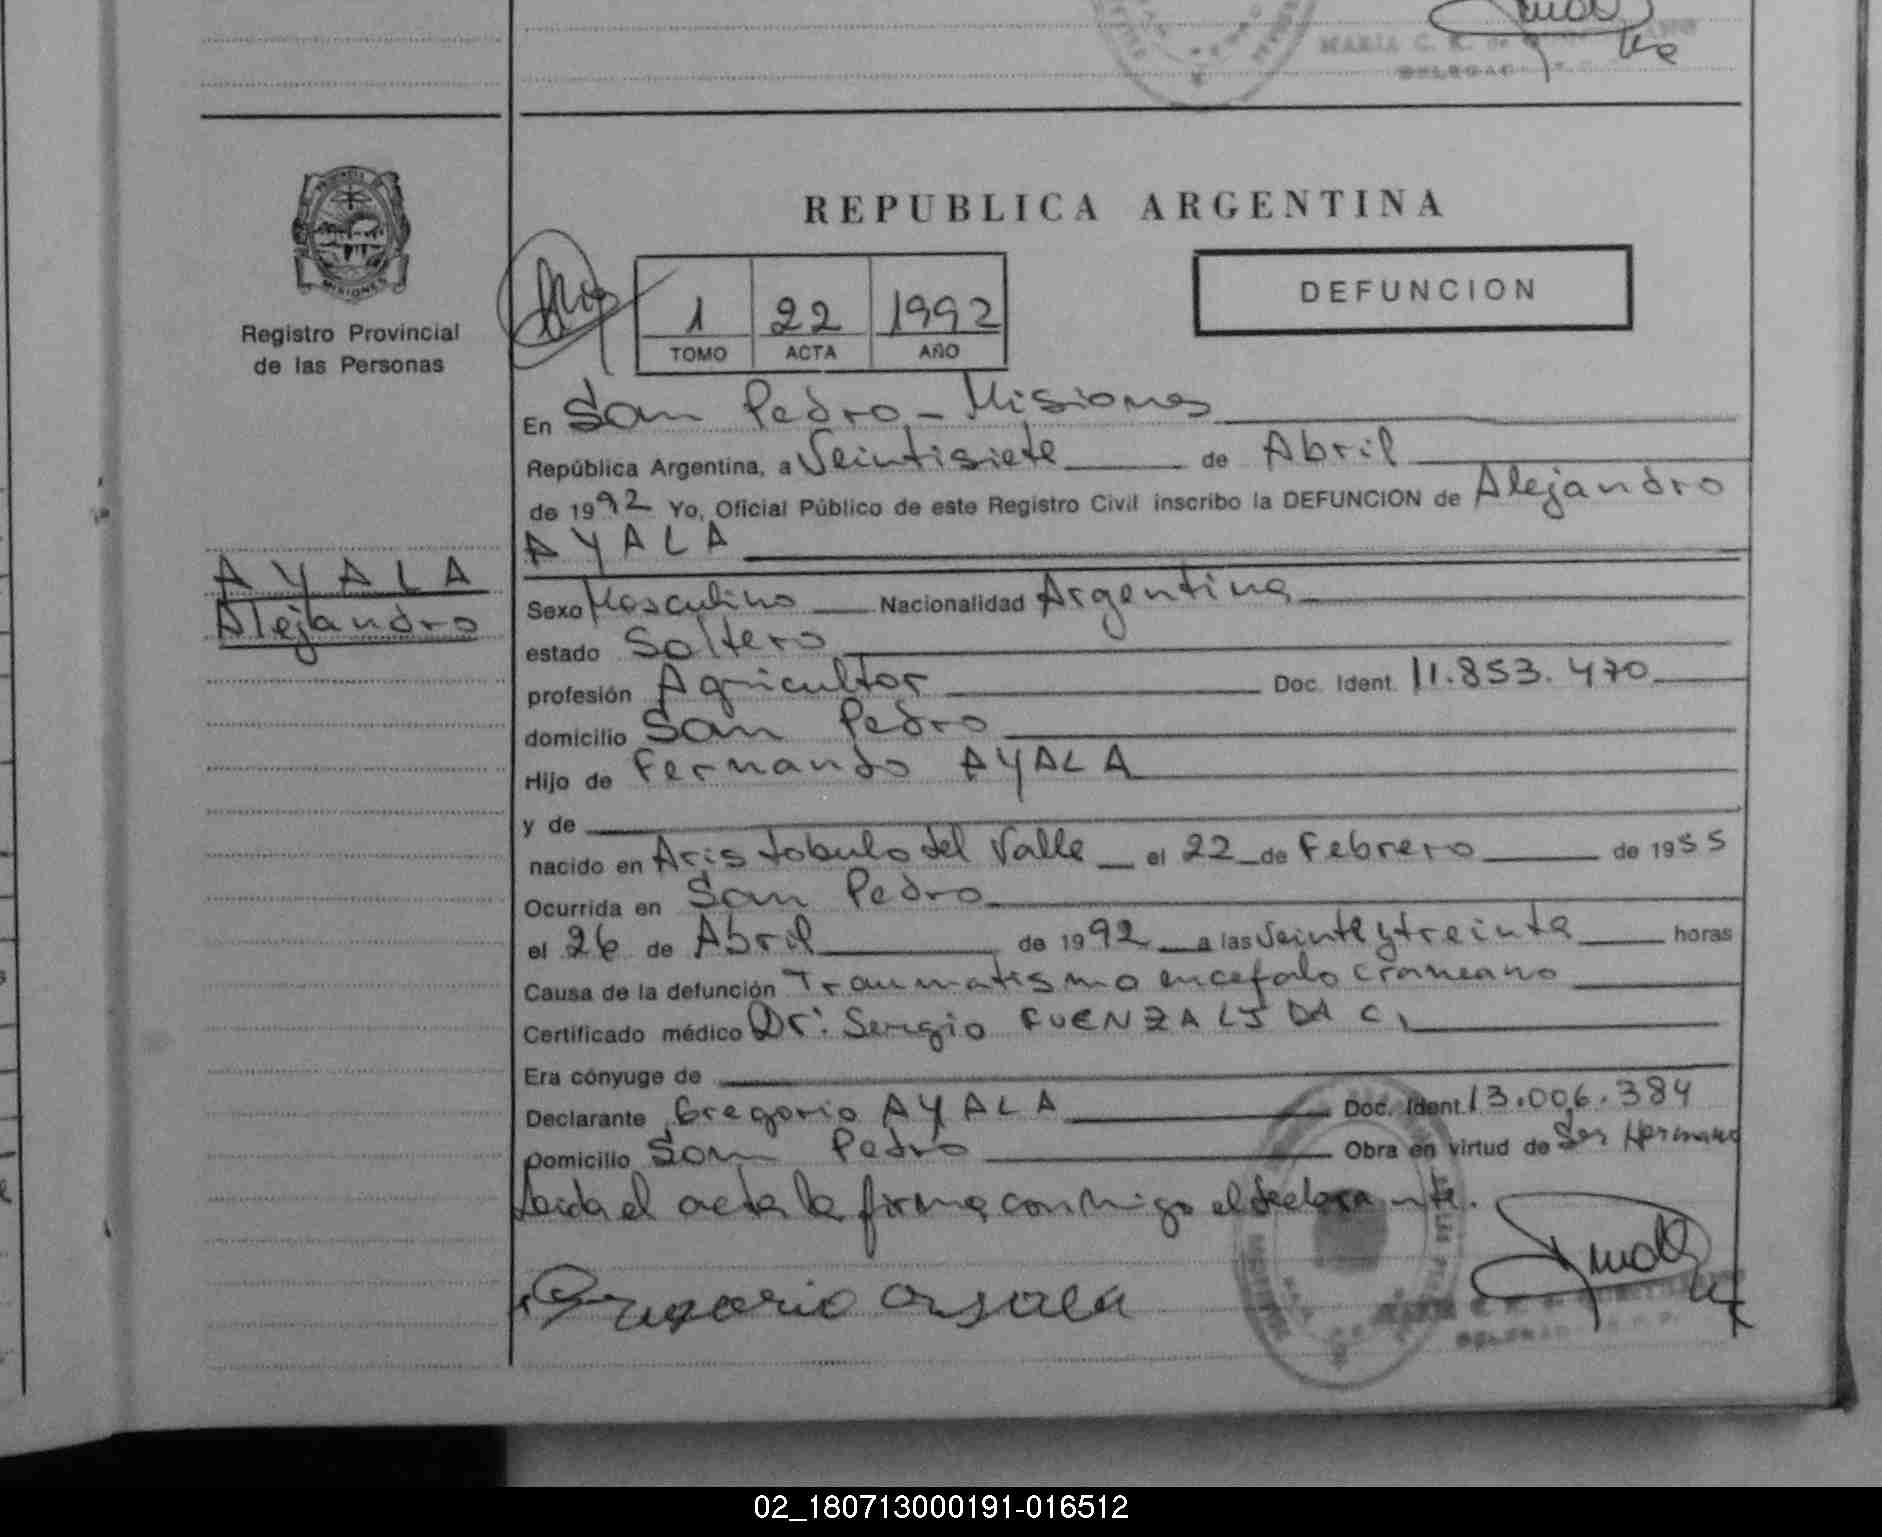 MARIA C. K. de
DELEGAD
PROVINCIA
MISIONES
Registro Provincial
de las Personas
AYALA
Alejandro
REPUBLICA ARGENTINA
1 22 1992
TOMO ACTA AÑO
DEFUNCION
En San Pedro - Misiones
República Argentina, a Veintisiete de Abril
de 1992 Yo, Oficial Público de este Registro Civil inscribo la DEFUNCION de Alejandro
AYALA
Sexo Masculino Nacionalidad Argentina
estado Soltero
profesión Agricultor Doc. Ident. 11.853.470
domicilio San Pedro
Hijo de Fernando AYALA
y de
nacido en Aristobulo del Valle el 22 de Febrero de 1955
Ocurrida en San Pedro
el 26 de Abril de 1992 a las Veinte y treinta horas
Causa de la defunción Traumatismo encefalo craneano
Certificado médico Dr: Sergio FUENZALIDA C.
Era cónyuge de
Declarante Gregorio AYALA Doc. Ident. 13.006.384
Domicilio San Pedro Obra en virtud de Ser Hermano
Leida el acta la firma conmigo el declarante.
Gregorio Ayala
02_180713000191-016512